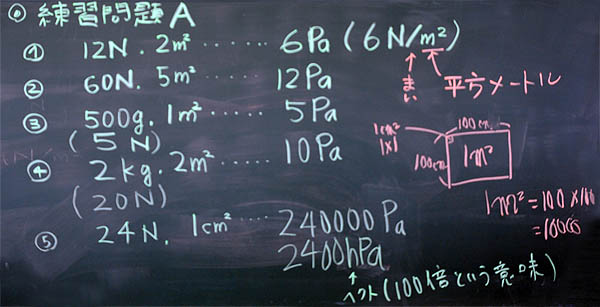 ◎ 練習問題A
① 12N. 2m² ...... 6Pa (6N/m²)
② 60N. 5m² ...... 12Pa
③ 500g. 1m² ...... 5Pa
(5N)
④ 2kg. 2m² ...... 10Pa
(20N)
⑤ 24N. 1cm² ..... 240000Pa
2400hPa
↑
ヘクト(100倍という意味)
↑ ↑
まい 平方メートル
100cm
1cm²
1×1
100cm 1m²
1m²=100×100
=10000